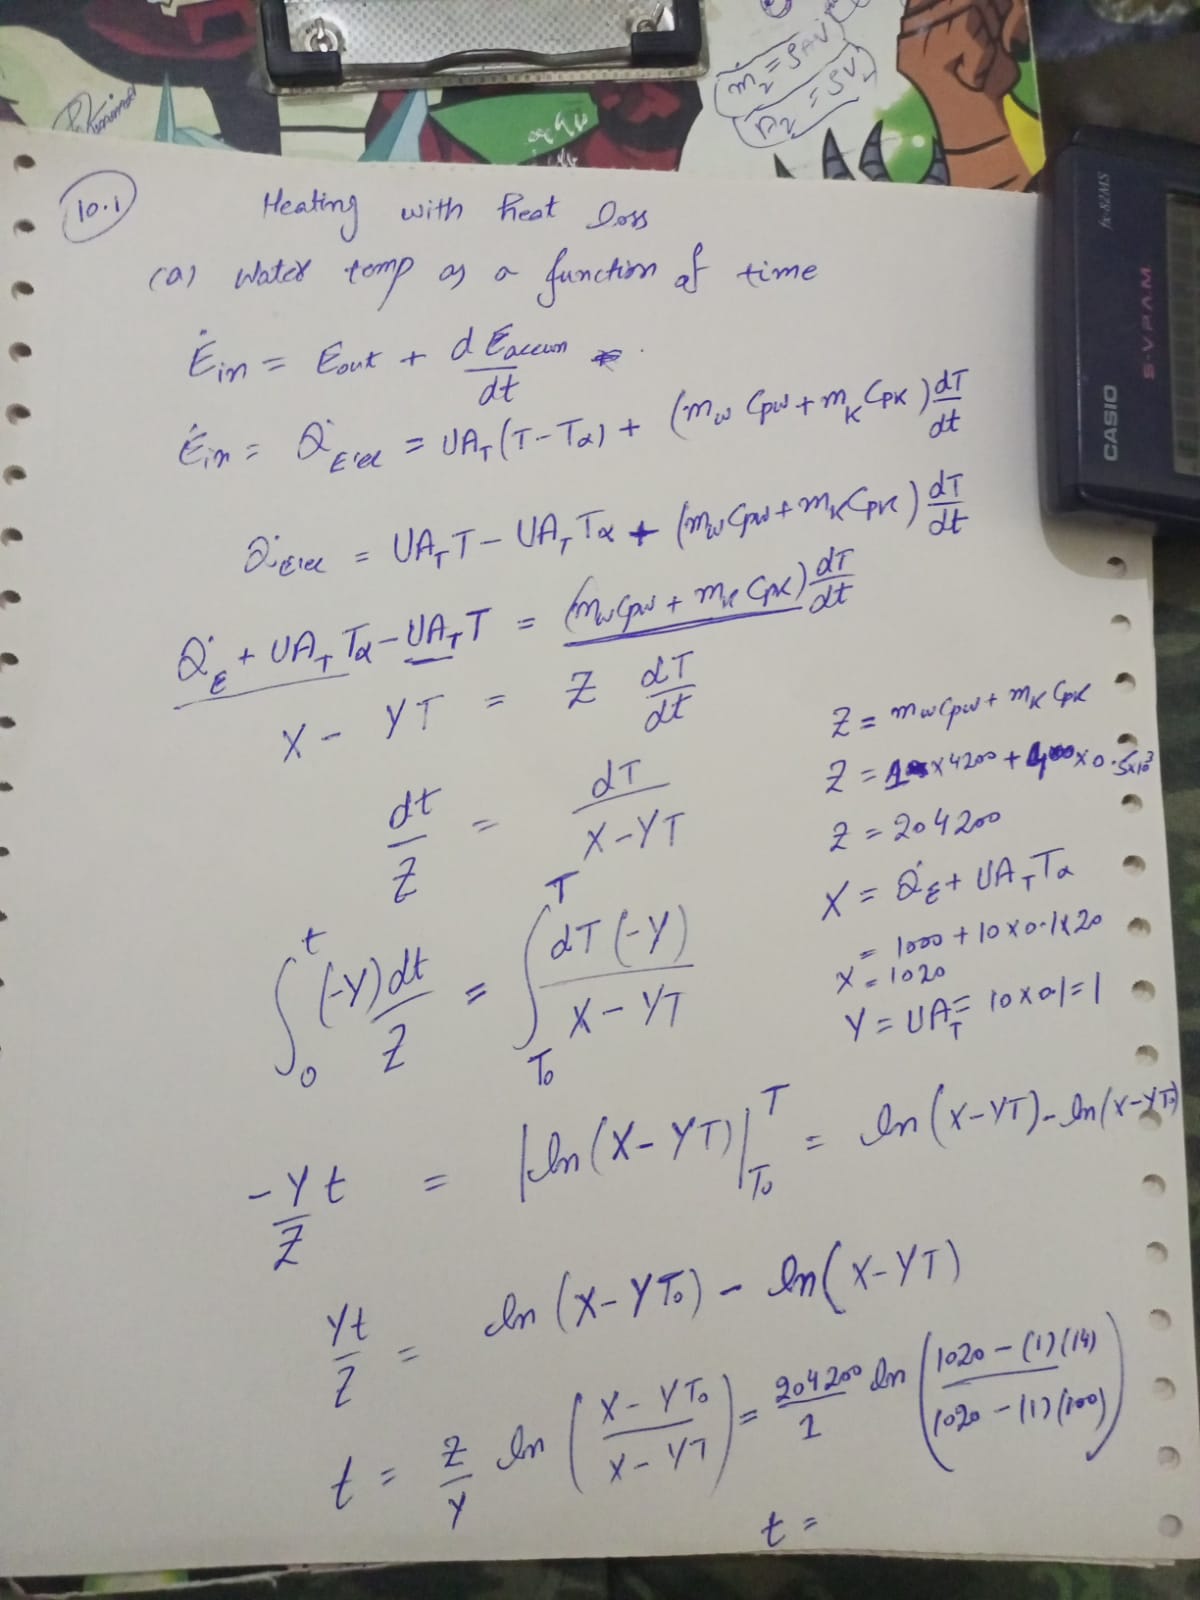 ṁ₂ = ρAV
ṅ₂ = ρV₁
CASIO
S-V.P.A.M
fx-82MS
10.1
Heating with heat loss
(a) Water temp as a function of time
Ėin = Eout + dEaccum/dt
Ėin = Q̇Elec = UA_T(T-Tα) + (m_w Cpw + m_K CpK) dT/dt
Q̇Elec = UA_T T - UA_T Tα + (m_w Cpw + m_K CpK) dT/dt
Q̇_E + UA_T Tα - UA_T T = (m_w Cpw + m_K CpK) dT/dt
X - YT = Z dT/dt
dt/Z = dT/(X-YT)
∫₀ᵗ (-Y)dt/Z = ∫_To^T dT(-Y)/(X-YT)
Z = m_w Cpw + m_K CpK
Z = × 4200 + × 0.5x10³
Z = 204200
X = Q̇_E + UA_T Tα
= 1000 + 10x0.1x20
X = 1020
Y = UA_T = 10x0.1 = 1
-Y/Z t = |ln(X-YT)|_To^T = ln(X-YT) - ln(X-YTo)
Yt/Z = ln(X-YTo) - ln(X-YT)
t = Z/Y ln((X-YTo)/(X-YT)) = 204200/1 ln((1020-(1)(14))/(1020-(1)(100)))
t =